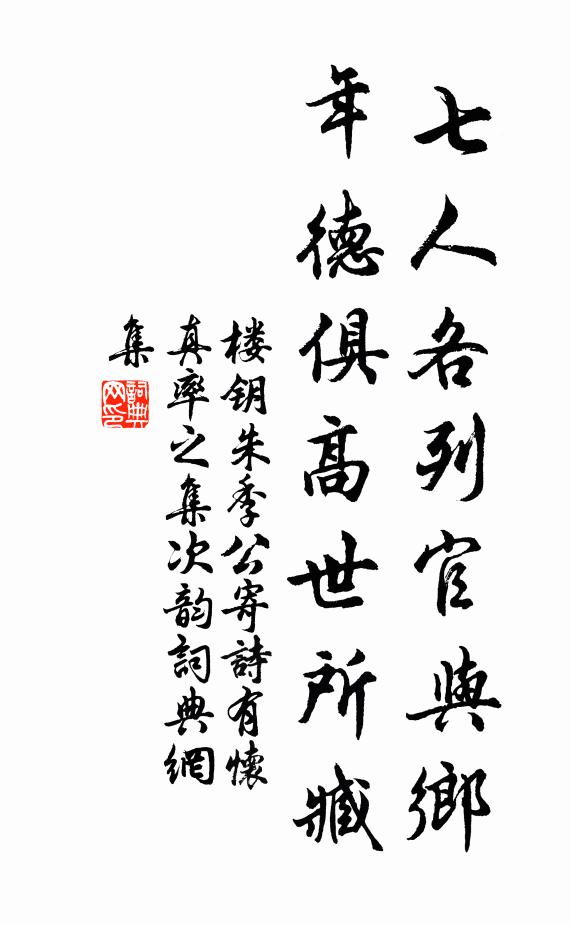 七人各列官與鄉
年德俱高世所臧
楼钥朱季公寄詩有懷
真率之集次韵詞典網
集
詞典网印